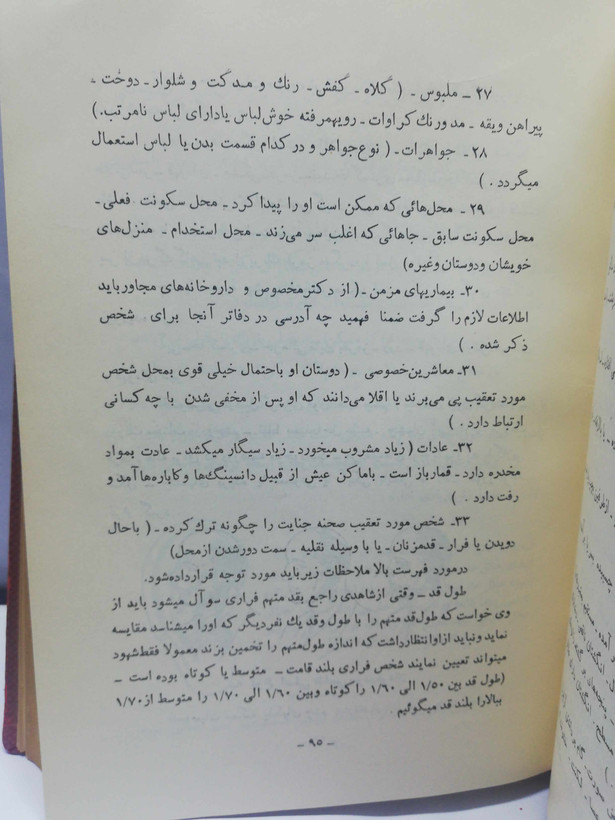 ۲۷ ـ ملبوس ـ ( کلاه ـ کفش ـ رنك و مـد کت و شلوار ـ دوخت ـ
پیراهن ویقه ـ مد ورنك کراوات ـ رویهمرفته خوش لباس یادارای لباس نامرتب.)
۲۸ـ جواهرات ـ ( نوع جواهر و در کدام قسمت بدن یا لباس استعمال
میگردد . )
۲۹ ـ محل‌هائی که ممکن است او را پیدا کرد ـ محل سکونت فعلی ـ
محل سکونت سابق ـ جاهائی که اغلب سر می‌زند ـ محل استخدام ـ منزل‌های
خویشان ودوستان وغیره)
۳۰ـ بیماریهای مزمن ـ ( از دکتر مخصوص و داروخانه‌های مجاور باید
اطلاعات لازم را گرفت ضمناً فهمید چه آدرسی در دفاتر آنجا برای شخص
ذکر شده . )
۳۱ـ معاشرین خصوصی ـ ( دوستان او باحتمال خیلی قوی بمحل شخص
مورد تعقیب پی می‌برند یا اقلا می‌دانند که او پس از مخفی شدن با چه کسانی
ارتباط دارد . )
۳۲ـ عادات ( زیاد مشروب میخورد ـ زیاد سیگار میکشد ـ عادت بمواد
مخدره دارد ـ قمارباز است ـ باماکن عیش از قبیل دانسینگ‌ها و کاباره‌ها آمد و
رفت دارد . )
۳۳ـ شخص مورد تعقیب صحنه جنایت را چگونه ترك کرده ـ ( باحال
دویدن یا فرار ـ قدمزنان ـ یا با وسیله نقلیه ـ سمت دورشدن از محل)
درمورد فهرست بالا ملاحظات زیر باید مورد توجه قرارداده‌شود.
طول قد ـ وقتی از شاهدی راجع بقد متهم فراری سو آل میشود باید از
وی خواست که طول قد متهم را با طول وقد یك نفر دیگر که اورا میشناسد مقایسه
نماید ونباید از او انتظار داشت که اندازه طول متهم را تخمین بزند معمولا فقط شهود
میتواند تعیین نمایند شخص فراری بلند قامت ـ متوسط یا کوتاه بوده است ـ
(طول قد بین ۱/۵۰ الی ۱/۶۰ را کوتاه وبین ۱/۶۰ الی ۱/۷۰ را متوسط از ۱/۷۰
ببالارا بلند قد میگوئیم .
ـ ۹۵ ـ